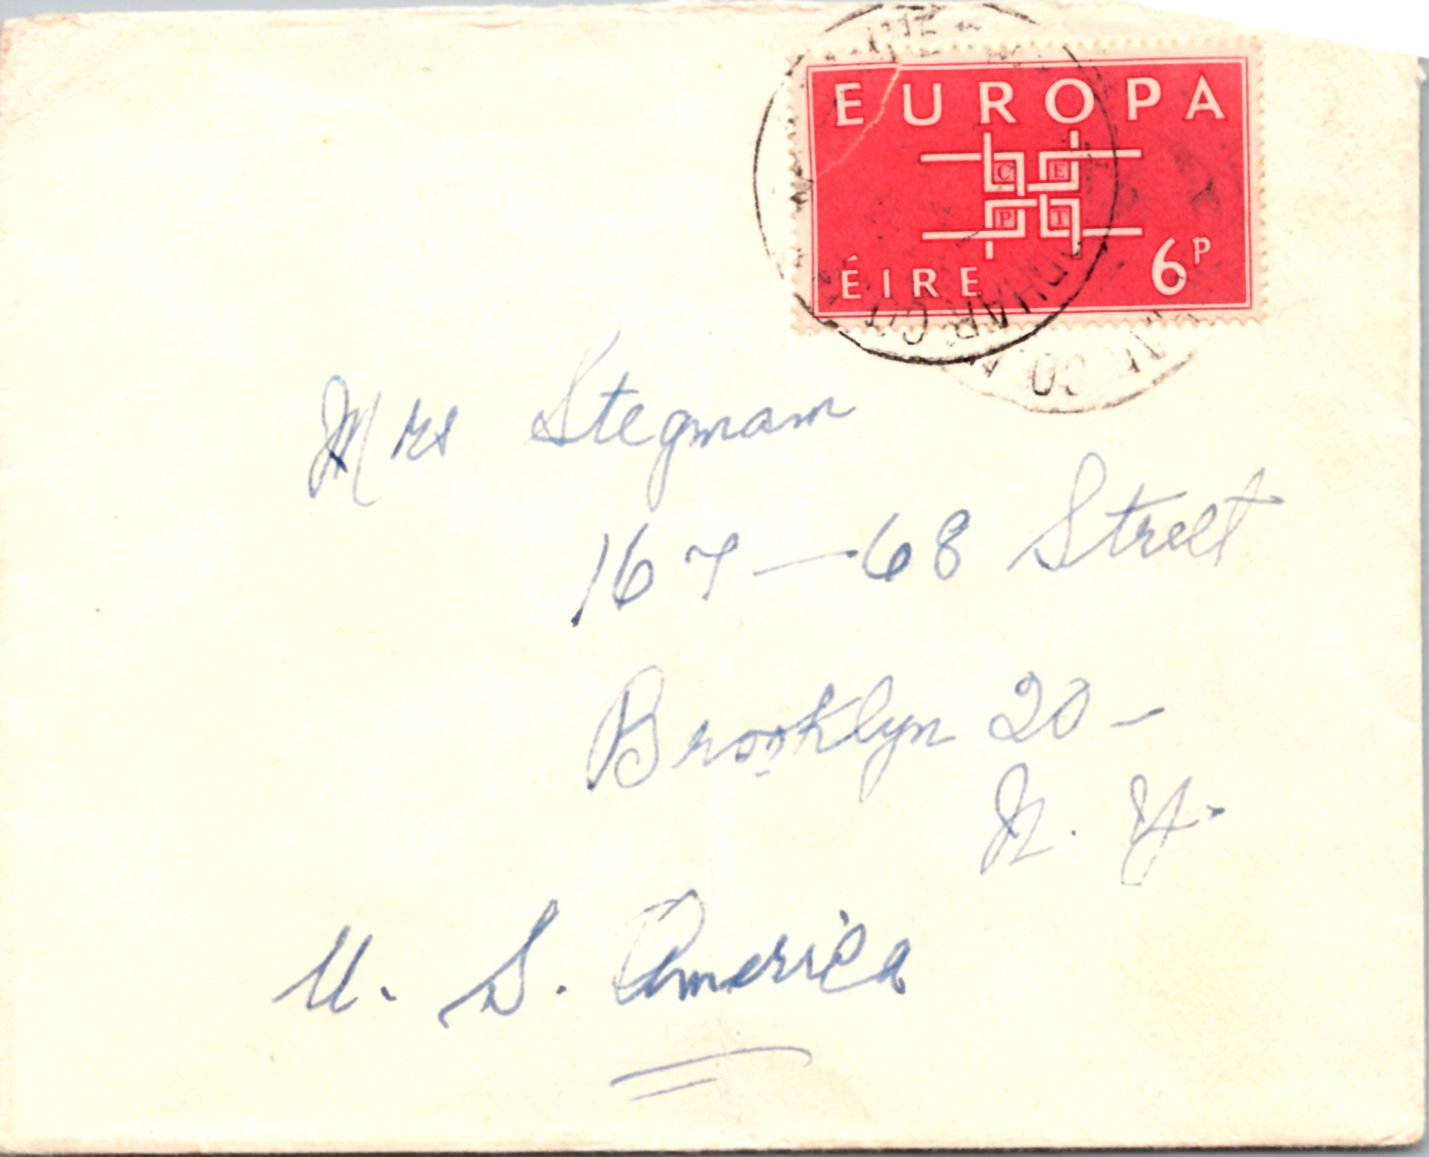 EUROPA
C E
P T
ÉIRE 6P
Mrs Stegmam
167 — 68 Street
Brooklyn 20 —
N. Y.
U. S. America